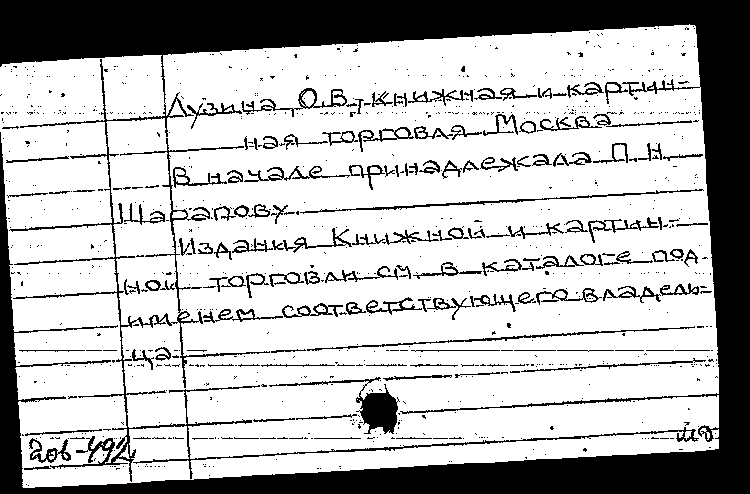 Лузина, О.В., книжная и картин-
ная торговля. Москва
В начале принадлежала П.Н.
Шарапову.
Издания Книжной и картин-
ной торговли см. в каталоге под
именем соответствующего владель-
ца.
206-492